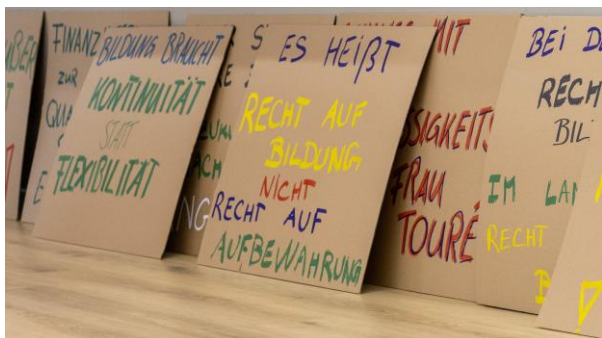 FINANZ
ZUR
BILDUNG BRAUCHT
KONTINUITÄT
STATT
FLEXIBILITÄT
ES HEIßT
RECHT AUF
BILDUNG
NICHT
RECHT AUF
AUFBEWAHRUNG
MIT
SSIGKEIT
FRAU
TOURÉ
BEI D
RECH
BIL
IM LAN
RECHT